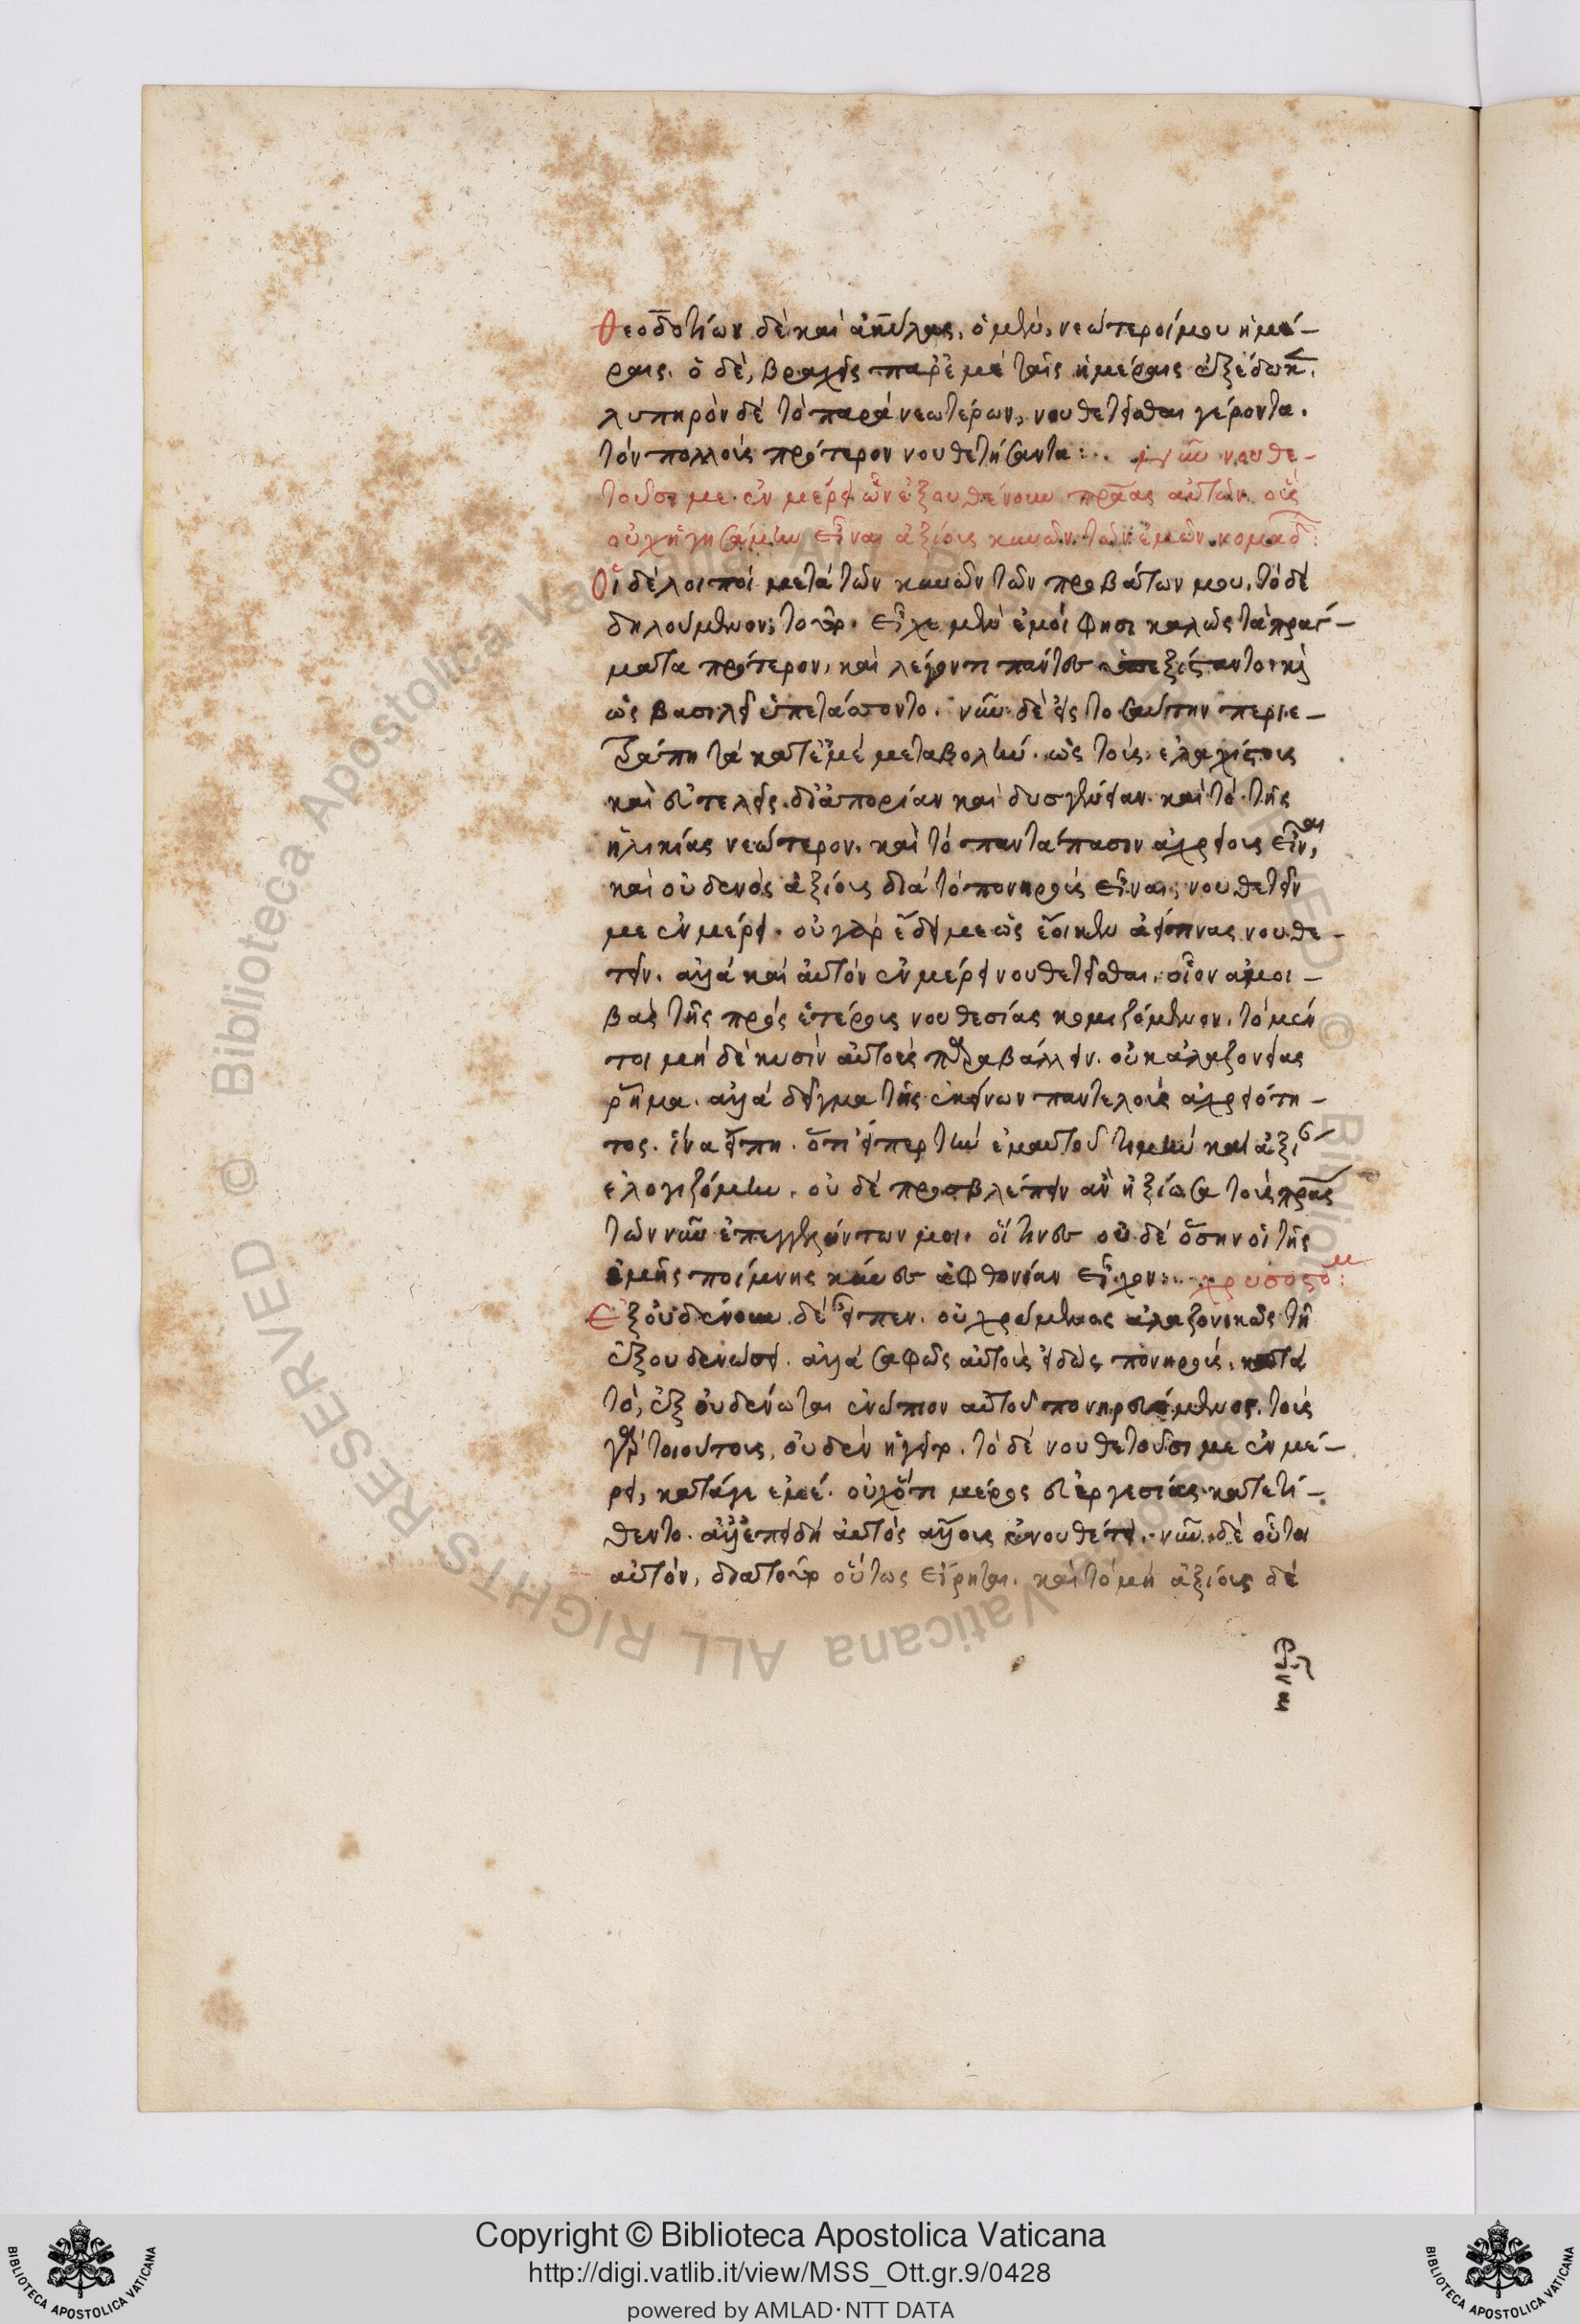 Θεοδοτίων δὲ καὶ ἀκύλας, ὁ μὲν, νεώτεροί μου ἡμέ-
ραις. ὁ δὲ, βραχεῖς παρ' ἐμὲ ταῖς ἡμέραις ἐξέδωκ.
λυπηρὸν δὲ τὸ παρὰ νεωτέρων, νουθετεῖσθαι γέροντα.
τὸν πολλοὺς πρότερον νουθετήσαντα:
νουθε-
τοῦσί με ἐν μέρει ὧν ἐξουθένουν πρας αὐτῶν. οὓς
οὐχ ἡγησάμην εἶναι ἀξίους κυνῶν τῶν ἐμῶν νομάδ:
Οἱ δὲ λοιποὶ μετὰ τῶν κυνῶν τῶν προβάτων μου. τὸ δὲ
δηλούμενον, τοῦτο. εἶχε μὲν ἐμοὶ φησι καλῶς τὰ πράγ-
ματα πρότερον, καὶ λέγοντι πάντες ὑπεξίσταντο. καὶ
ὡς βασιλεῖ ὑπετάσσοντο. νῦν δὲ εἰς τοσαύτην περιε-
τράπη τὰ κατ' ἐμὲ μεταβολὴν. ὡς τοὺς ἐλαχίστους
καὶ εὐτελεῖς δι' ἀπορίαν καὶ δυσγένειαν. καὶ τὸ τῆς
ἡλικίας νεώτερον. καὶ τὸ παντάπασιν ἀχρείους εἶναι,
καὶ οὐδενὸς ἀξίους διὰ τὸ πονηροὺς εἶναι, νουθετεῖν
με ἐν μέρει. οὐ γὰρ ἔδει με ὡς ἔοικεν ἀεί τινας νουθε-
τεῖν. ἀλλὰ καὶ αὐτὸν ἐν μέρει νουθετεῖσθαι. οἷον ἀμοι-
βὰς τῆς πρὸς ἑτέρους νουθεσίας κομιζόμενον. τὸ μέν
τοι μηδὲ κυσὶν αὐτοὺς παραβάλλειν. οὐκ ἀλαζονείας
ῥῆμα. ἀλλὰ δεῖγμα τῆς ἐκείνων παντελοῦς ἀχρειότη-
τος. ἵνα εἴπῃ. ὅτι εἴπερ τὴν ἐμαυτοῦ τιμὴν καὶ ἀξί
ἐλογιζόμην. οὐδὲ προσβλέπειν ἂν ἠξίωσα τοὺς πρας
τῶν νῦν ἐπεγγελώντων μοι. οἵτινες οὐδὲ ὅσην οἱ τῆς
ἐμῆς ποίμνης κύνες ἀφθονίαν εἶχον: χρυσοστομ:
Ἐξουδένουν δὲ εἶπεν. οὐ χρώμενος ἀλαζονικῶς τῇ
ἐξουδενώσει. ἀλλὰ σαφῶς αὐτοὺς εἰδὼς πονηροὺς. κατὰ
τὸ, ἐξουδένωται ἐνώπιον αὐτοῦ πονηρευόμενος. τοὺς
γὰρ τοιούτους, οὐδὲν ἡγεῖτο. τὸ δὲ νουθετοῦσί με ἐν μέ-
ρει, καταγε ἐμέ. οὐχ ὅτι μέρος εὐεργεσίας κατετί-
θεντο. ἀλλ' ἐπειδὴ αὐτὸς ἄλλους ἐνουθέτει. νῦν δὲ οὗτοι
αὐτόν, διὰ τοῦτο οὕτως εἴρηται. καὶ τὸ μὴ ἀξίους δὲ